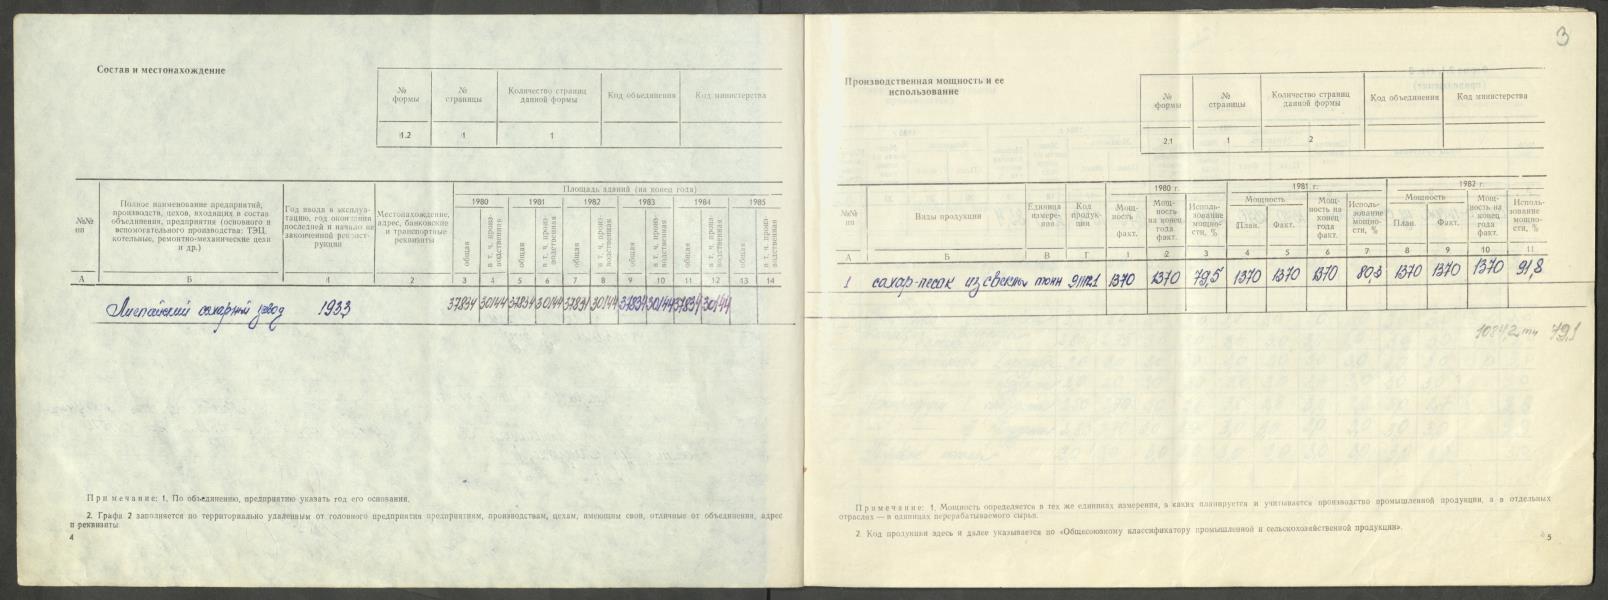 Состав и местонахождение
№ формы
№ страницы
Количество страниц данной формы
Код объединения
Код министерства
1.2
1
1
№№ пп
Полное наименование предприятий, производств, цехов, входящих в состав объединения, предприятия (основного и вспомогательного производства: ТЭЦ, котельные, ремонтно-механические цехи и др.)
Год ввода в эксплуатацию, год окончания последней и начало не законченной реконструкции
Местонахождение, адрес, банковские и транспортные реквизиты
Площадь зданий (на конец года)
1980 1981 1982 1983 1984 1985
общая
в т. ч. производственная
общая
в т. ч. производственная
общая
в т. ч. производственная
общая
в т. ч. производственная
общая
в т. ч. производственная
общая
в т. ч. производственная
А Б 1 2 3 4 5 6 7 8 9 10 11 12 13 14
Лиепайский сахарный завод 1933 37834 30144 37834 30144 37834 30144 37834 30144 37834 30144
Примечание: 1. По объединению, предприятию указать год его основания.
2. Графа 2 заполняется по территориально удаленным от головного предприятия предприятиям, производствам, цехам, имеющим свои, отличные от объединения, адрес
и реквизиты.
4
3
Производственная мощность и ее
использование
№ формы
№ страницы
Количество страниц данной формы
Код объединения
Код министерства
2.1
1
2
№№ пп
Виды продукции
Единица измерения
Код продукции
1980 г.
1981 г.
1982 г.
Мощность факт.
Мощность на конец года факт.
Использование мощности, %
Мощность
План.
Факт.
Мощность на конец года факт.
Использование мощности, %
Мощность
План.
Факт.
Мощность на конец года факт.
Использование мощности, %
А Б В Г 1 2 3 4 5 6 7 8 9 10 11
1 сахар-песок из свеклы тонн 1370 1370 79,5 1370 1370 1370 80,3 1370 1370 1370 91,8
1084,2 тн 79,1
Примечание: 1. Мощность определяется в тех же единицах измерения, в каких планируется и учитывается производство промышленной продукции, а в отдельных
отраслях — в единицах перерабатываемого сырья.
2. Код продукции здесь и далее указывается по «Общесоюзному классификатору промышленной и сельскохозяйственной продукции».
5